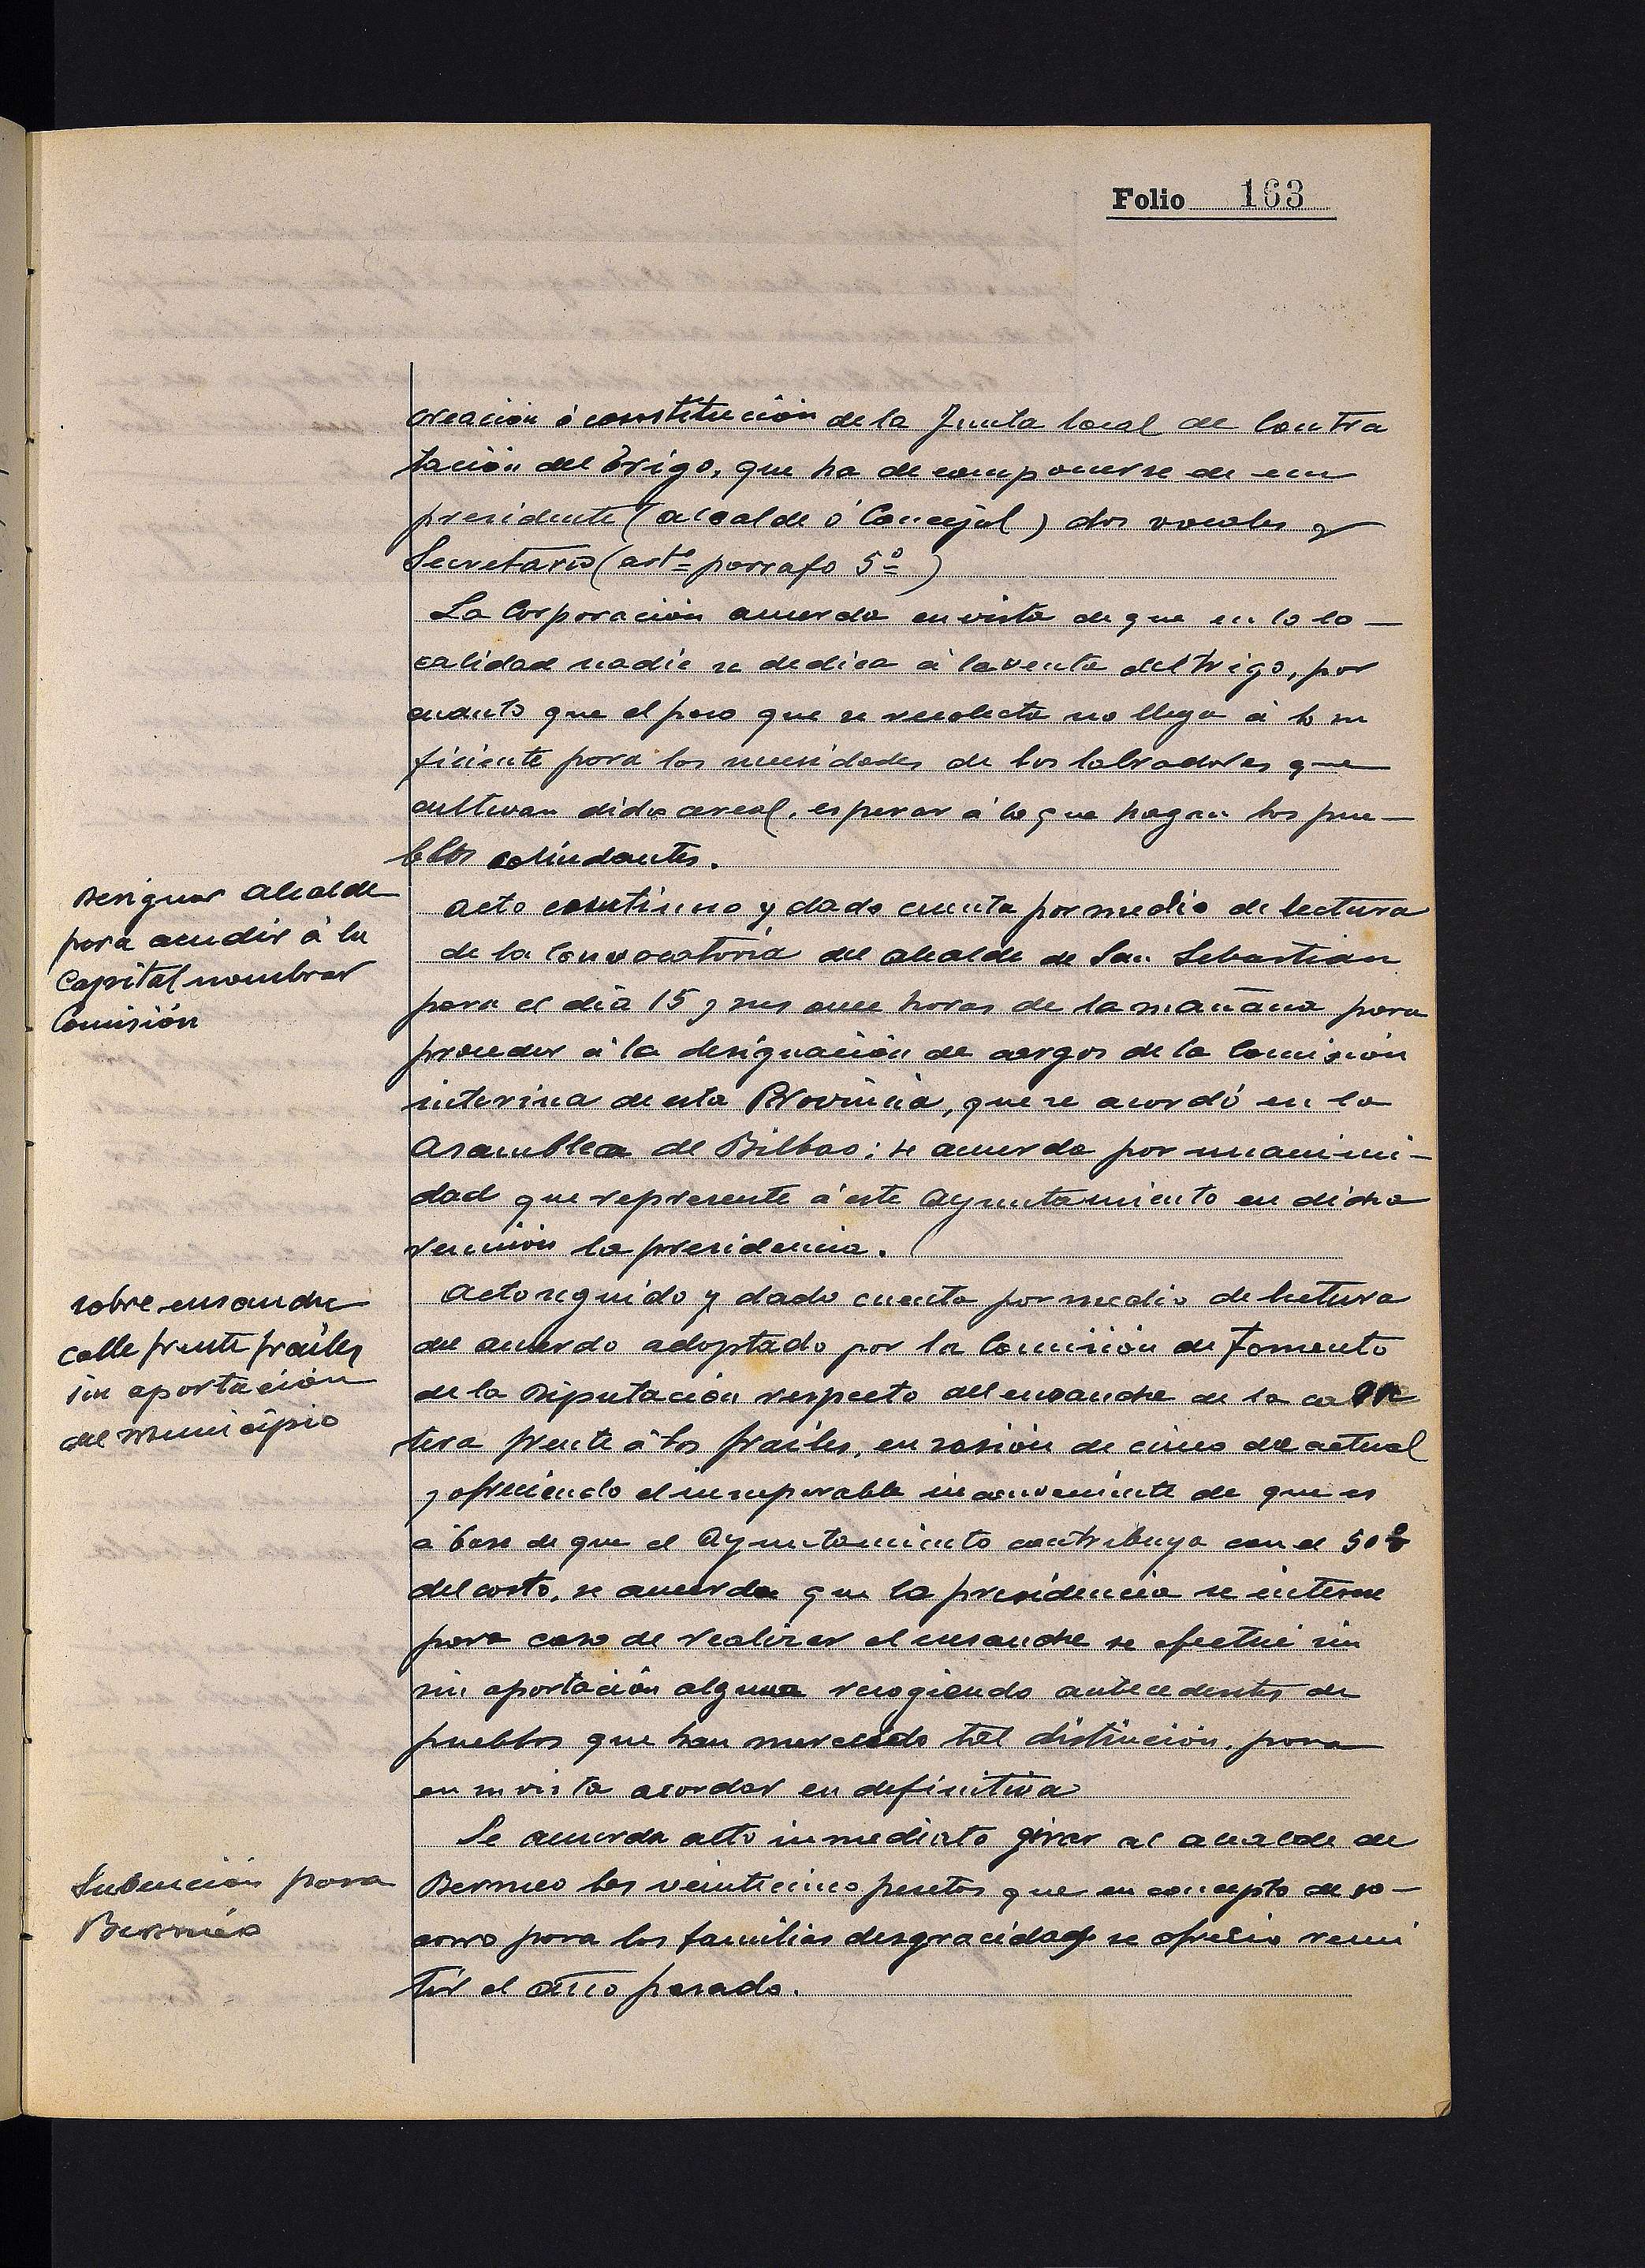 Folio 163
creación ó constitución de la Junta local de Contra
tación del Trigo, que ha de componerse de un
presidente (alcalde ó Concejal) dos vocales y
Secretario (artº parrafo 5º)
La Corporación acuerda en vista de que en la lo-
calidad nadie se dedica á la venta del trigo, por
cuanto que el poco que se recolecta no llega á lo su
ficiente para las necesidades de los labradores que
cultivan dicho cereal, esperar á lo que hagan los pue-
blos colindantes.
Designar Alcalde
para acudir á la
Capital nombrar
Comisión
Acto continuo y dado cuenta por medio de lectura
de la Convocatoria del Alcalde de San Sebastian
para el dia 15 y sus once horas de la mañana para
proceder á la designación de cargos de la Comisión
interina de esta Provincia, que se acordó en la
Asamblea de Bilbao; se acuerda por unanimi-
dad que represente á este Ayuntamiento en dicha
reunión la presidencia.
sobre ensanche
calle frente frailes
sin aportación
del Municipio
Acto seguido y dado cuenta por medio de lectura
del acuerdo adoptado por la Comisión de Fomento
de la Diputación respecto del ensanche de la carre
tera frente á los frailes, en sesión de cinco del actual
y ofreciendo el insuperable inconveniente de que es
á base de que el Ayuntamiento contribuya con el 50%
del costo, se acuerda que la presidencia se interese
para caso de realizar el ensanche se efectue sin
sin aportación alguna recogiendo antecedentes de
pueblos que han merecido tal distinción, para
en su vista acordar en definitiva
Subención para
Bermeo
Se acuerda acto inmediato girar al alcalde de
Bermeo las veinticinco pesetas que en concepto de so-
corro para las familias desgracidas se ofreció remi
tir el año pasado.